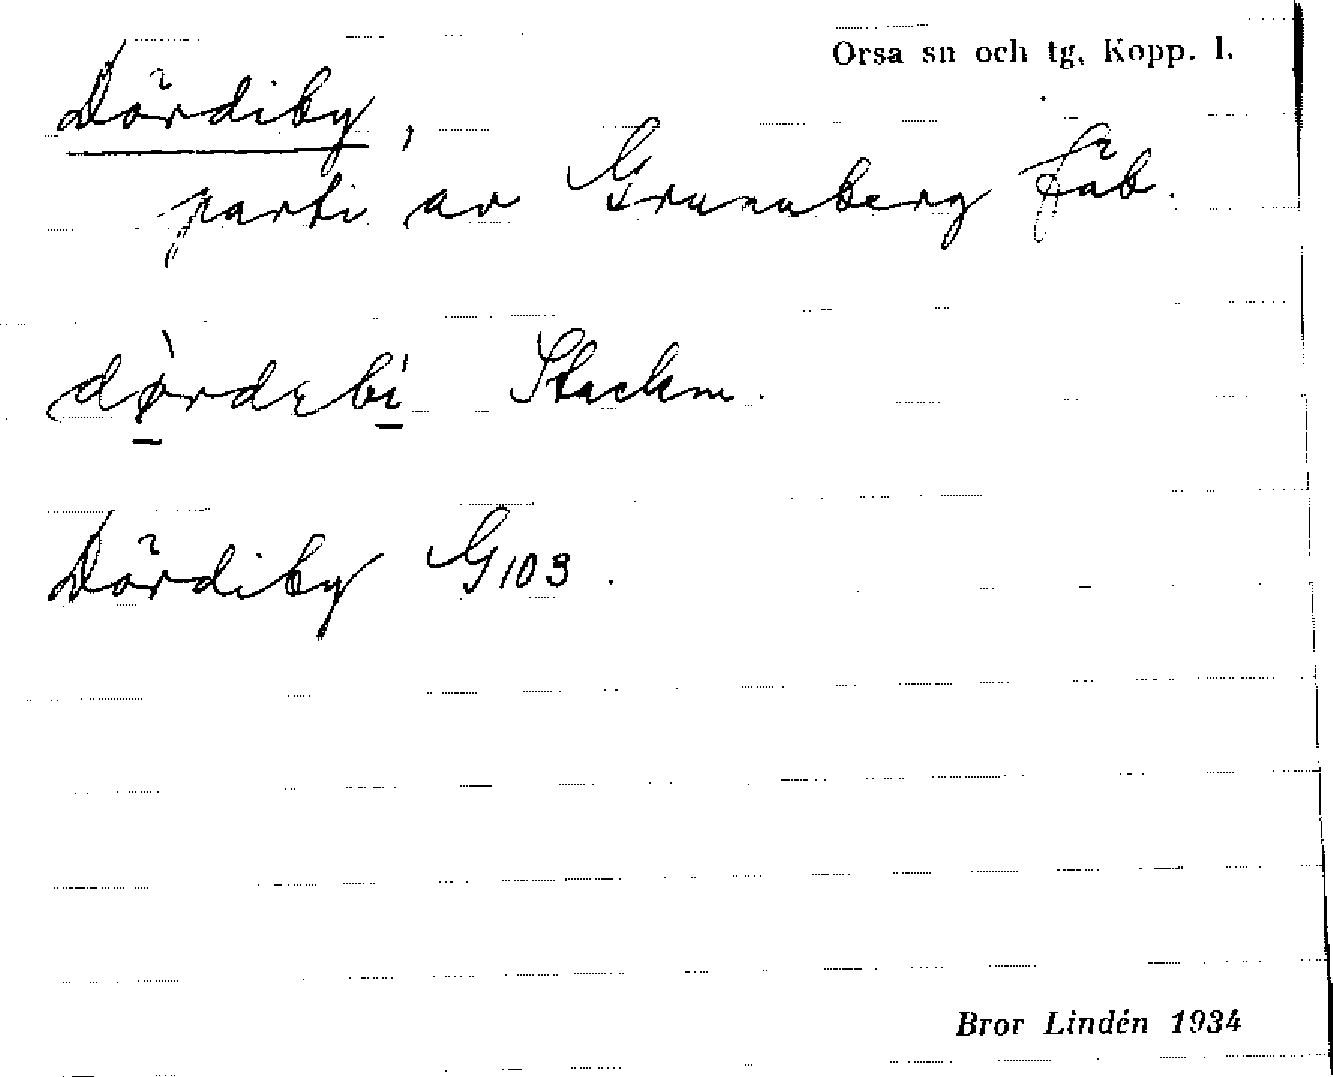 Orsa sn och tg, Kopp. l.
Dördiby,
parti av Grunuberg fäb.
dørdɛbi Stackm.
Dördiby G103.
Bror Lindén 1934